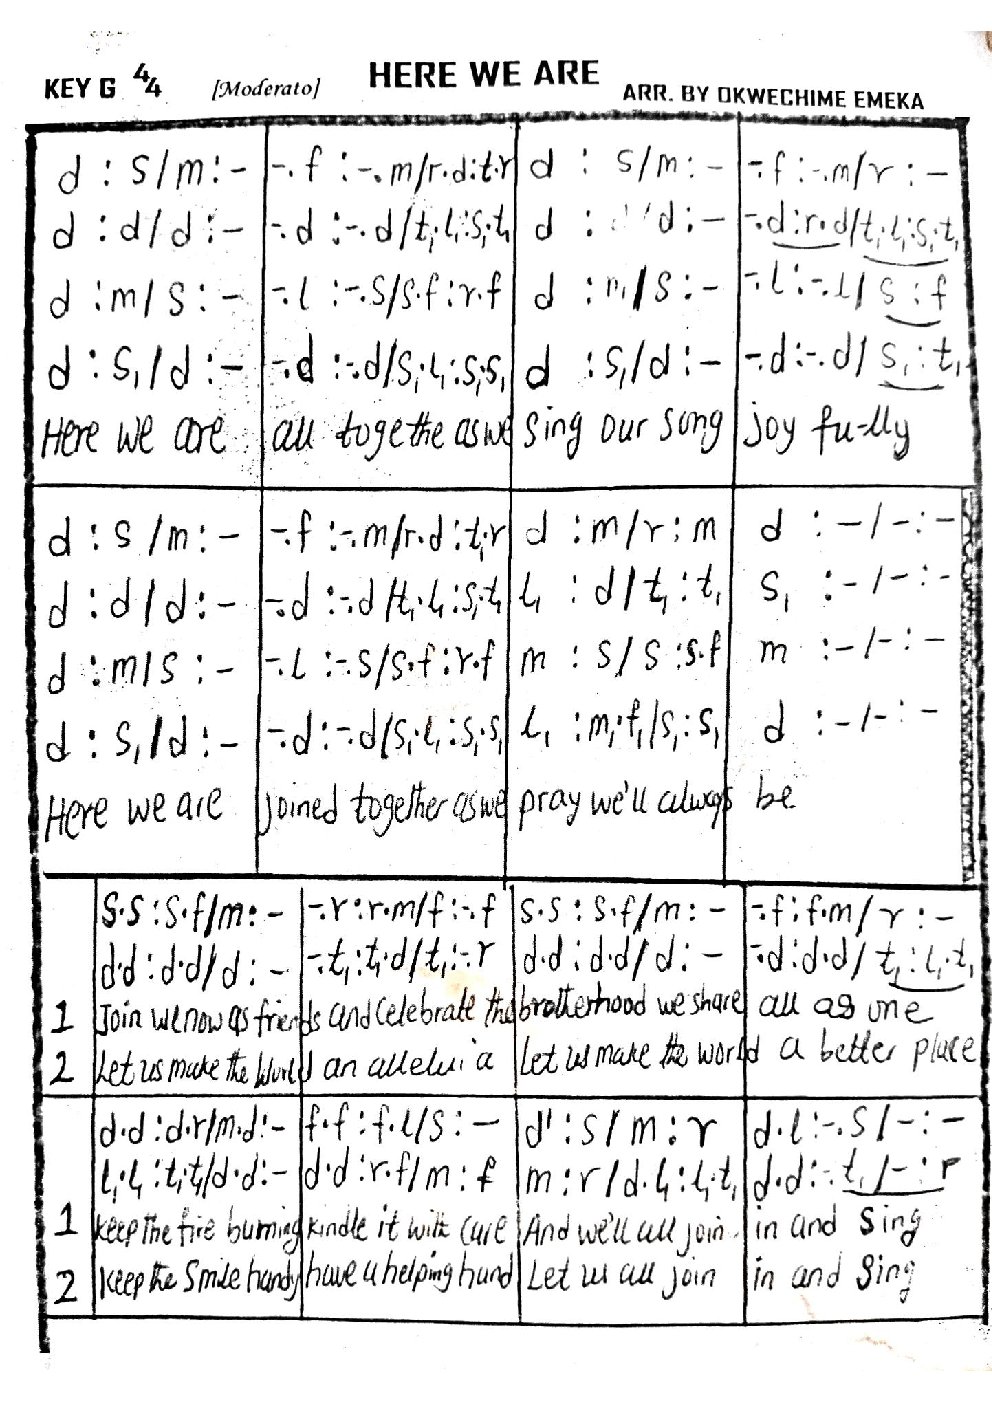 HERE WE ARE
KEY G 4/4 [Moderato] ARR. BY OKWECHIME EMEKA
d : s / m : - -. f : -. m / r . d : t . r d : s / m : - -. f : -. m / r : -
d : d / d : - -. d : -. d / t₁ . l₁ : s₁ . t₁ d : d : - -. d : r . d / t₁ . l₁ : s₁ . t₁
d : m / s : - -. l : -. s / s . f : r . f d : m / s : - -. l : -. l / s : f
d : s₁ / d : - -. d : -. d / s₁ . l₁ : s₁ . s₁ d : s₁ / d : - -. d : -. d / s₁ : t₁
Here we are all togethe as we sing our song joy fu-lly
d : s / m : - -. f : -. m / r . d : t₁ . r d : m / r : m d : - / - : -
d : d / d : - -. d : -. d / t₁ . l₁ : s₁ . t₁ l₁ : d / t₁ : t₁ s₁ : - / - : -
d : m / s : - -. l : -. s / s . f : r . f m : s / s : s . f m : - / - : -
d : s₁ / d : - -. d : -. d / s₁ . l₁ : s₁ . s₁ l₁ : m₁ . f₁ / s₁ : s₁ d : - / - : -
Here we are joined together as we pray we'll always be
s . s : s . f / m : - -. r : r . m / f : -. f s . s : s . f / m : - -. f : f . m / r : -
d . d : d . d / d : - -. t₁ : t₁ . d / t₁ : -. r d . d : d . d / d : - -. d : d . d / t₁ : l₁ . t₁
1 Join we now as friends and celebrate the brotherhood we share all as one
2 Let us make the world an alleluia Let us make the world a better place
d . d : d . r / m . d : - f . f : f . l / s : - d' : s / m : r d . l : -. s / - : -
l₁ . l₁ : t₁ . t₁ / d . d : - d . d : r . f / m : f m : r / d . l₁ : l₁ . t₁ d . d : -. t₁ / - : r
1 keep the fire burning kindle it with care And we'll all join in and sing
2 keep the smile handy have a helping hand Let us all join in and sing